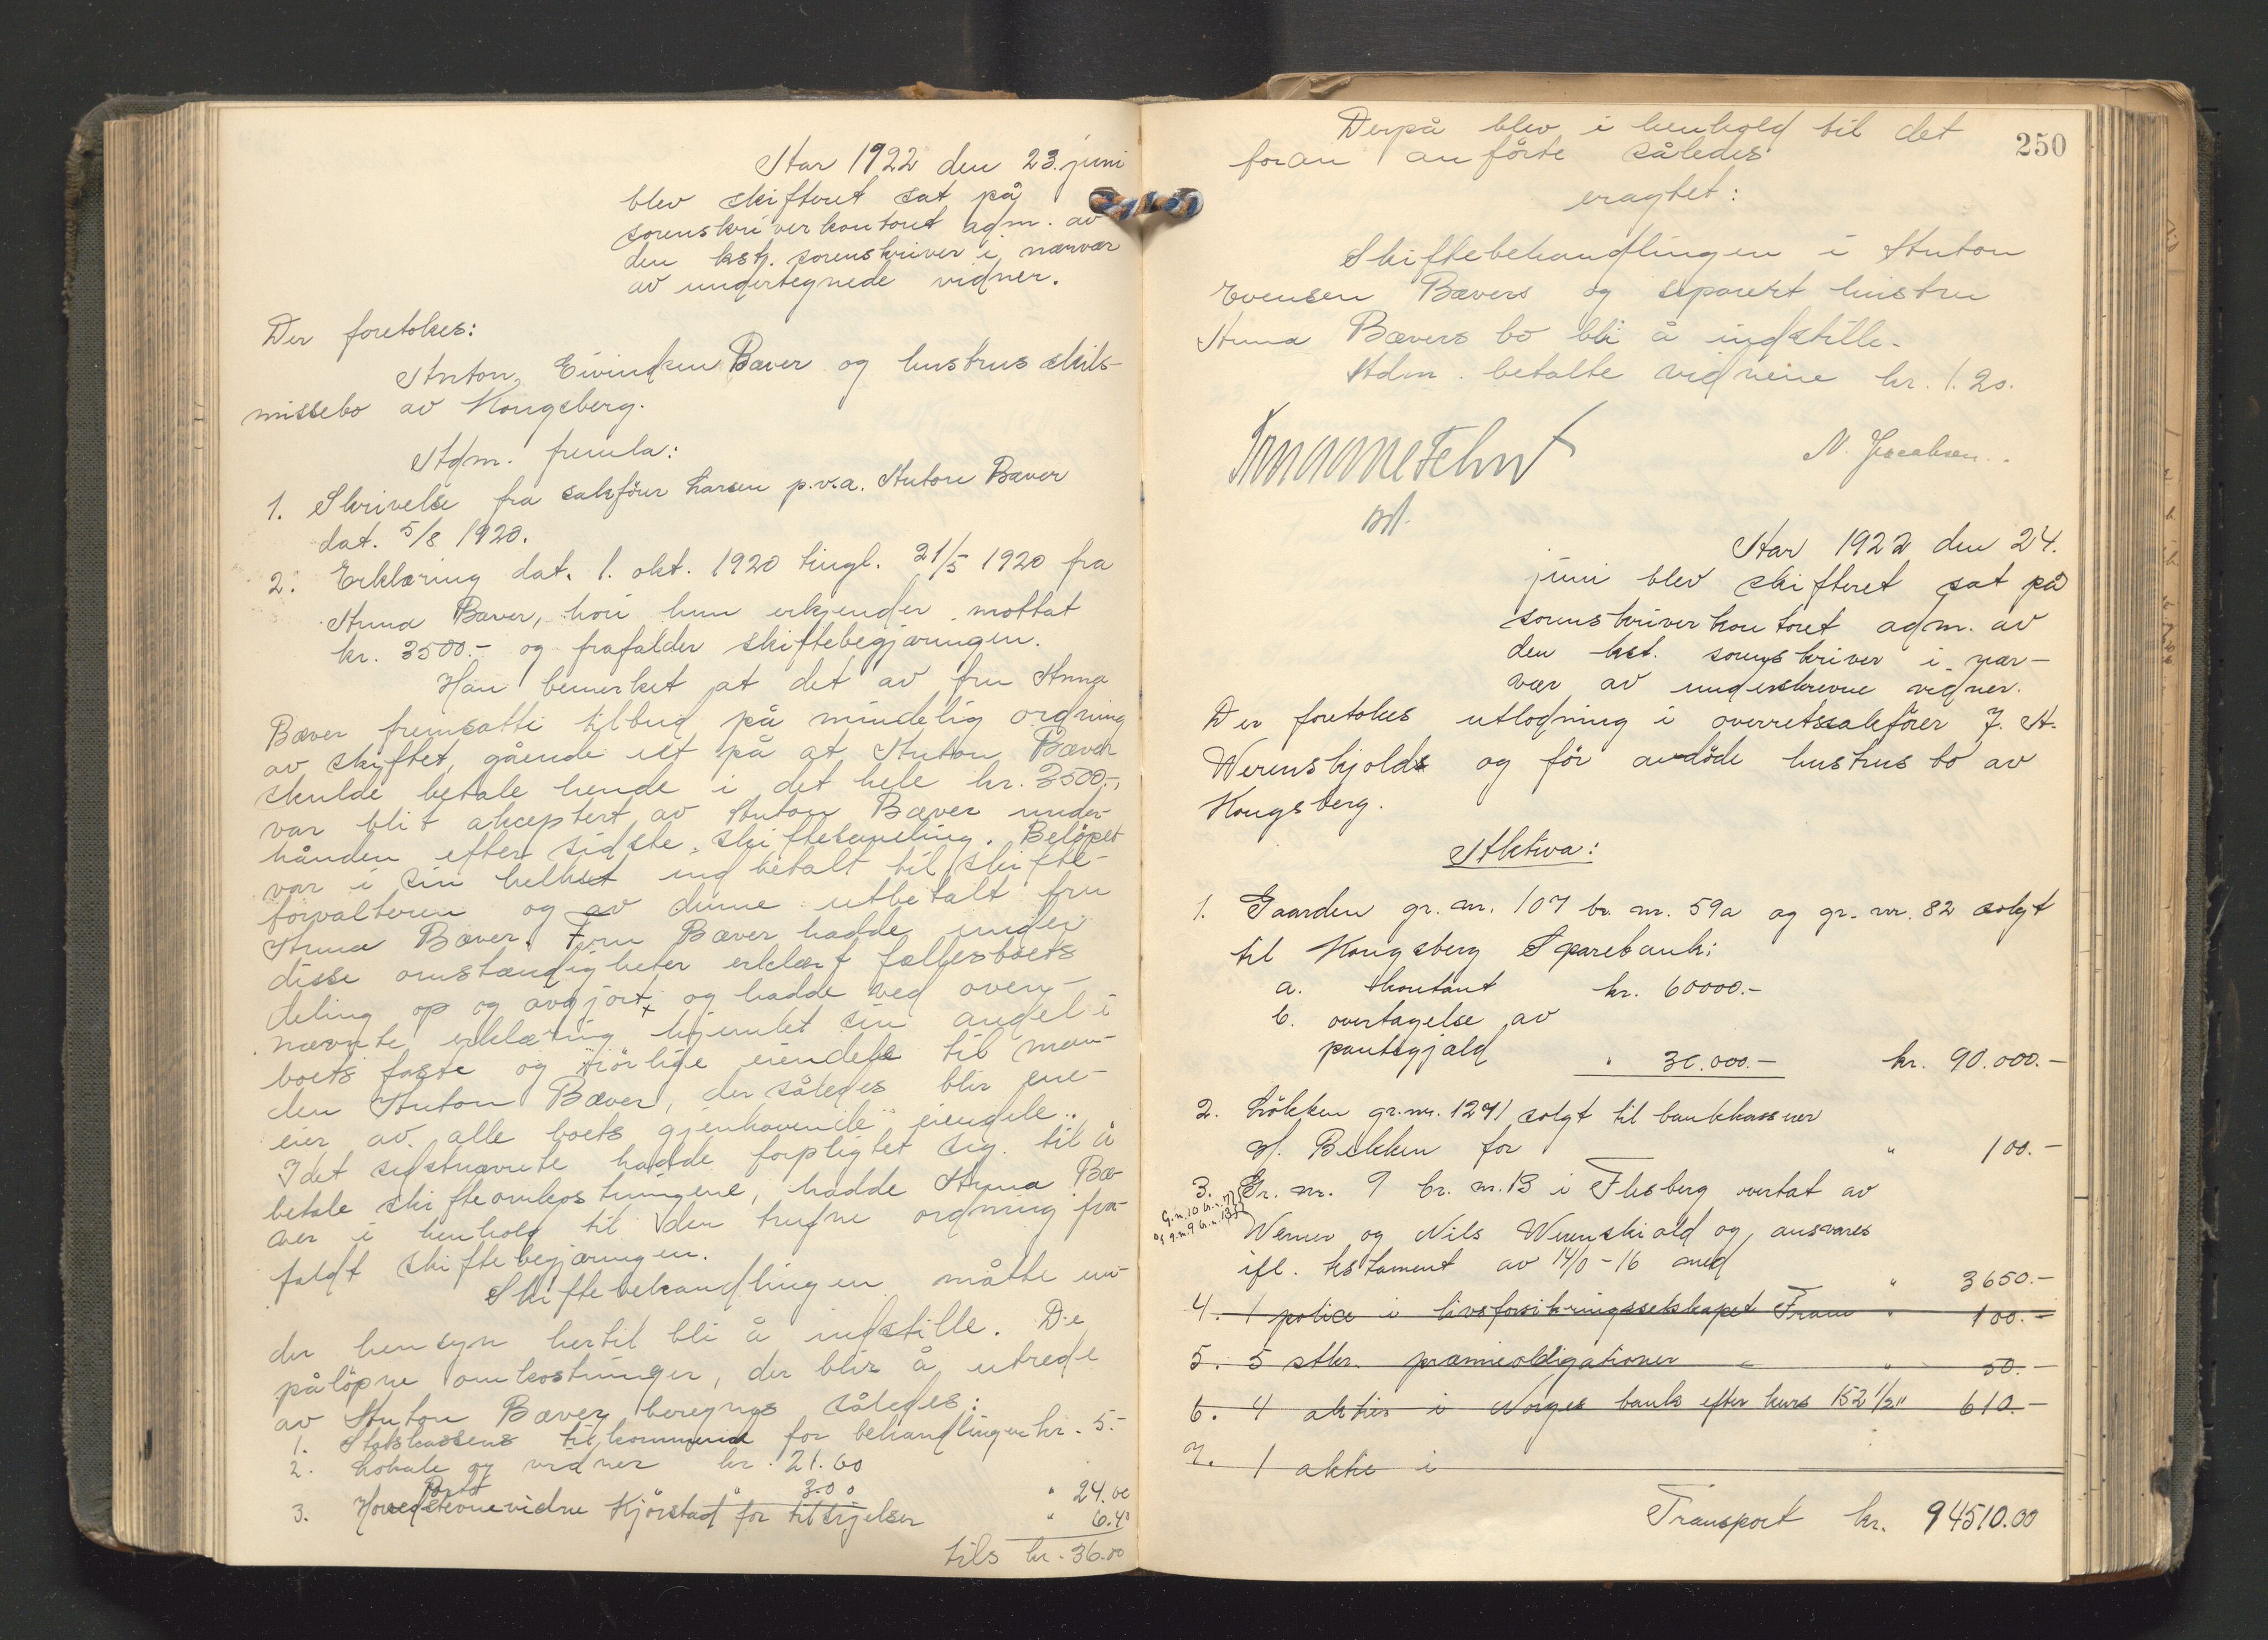 Aar 1922 den 23. juni
blev skifteret sat på
sorenskriverkontoret adm. av
den kst. sorenskriver i nærvær
av undertegnede vidner.
Der foretokes:
Anton Eivindsen Bæver og hustrus skils-
missebo av Kongsberg.
Adm. fremla:
1. Skrivelse fra sakfører Larsen p.v.a. Anton Bæver
dat. 5/8 1920.
2. Erklæring dat. 1. okt. 1920 tingl. 21/5 1920 fra
Anna Bæver, hvori hun erkjender mottat
kr. 3500.- og frafalder skiftebegjæringen.
Han bemerket at det av fru Anna
Bæver fremsatte tilbud på mindelig ordning
av skiftet, gående ut på at Anton Bæver
skulde betale hende i det hele kr. 3500.-,
var blit akseptert av Anton Bæver under-
hånden efter sidste skiftesamling. Beløpet
var i sin helhet indbetalt til skifte-
forvalteren og av denne utbetalt fru
Anna Bæver. Fru Bæver hadde under
disse omstændigheter erklært fællesboets
deling op og avgjort, og hadde ved oven-
nævnte erklæring hjemlet sin andel i
boets faste og rørlige eiendele til man-
den Anton Bæver, der således blir ene-
eier av alle boets gjenhavende eiendele.
Idet sidstnævnte hadde forpligtet sig til å
betale skifteomkostningene, hadde Anna Bæ-
ver i henhold til den trufne ordning fra-
faldt skiftebegjæringen.
Skiftebehandlingen måtte un-
der hensyn hertil bli å indstille. De
påløpne omkostninger, der blir å utrede
av Anton Bæver beregnes således:
1. Statskassens tilkommende for behandlingen kr. 5.-
2. Lokale og vidner kr. 21.60
Porto 3.00 " 24.60
3. Hovedstevnevidne Kjørstad for tilsigelser " 6.40
tils kr. 36.00
250
Derpå blev i henhold til det
foran anførte således
eragtet:
Skiftebehandlingen i Anton
Evensen Bævers og separert hustru
Anna Bævers bo bli å indstille.
Adm. betalte vidnene kr. 1.20.
N. Jacobsen
Aar 1922 den 24.
juni blev skifteret sat på
sorenskriverkontoret adm. av
den kst. sorenskriver i nær-
vær av underskrevne vidner.
Der foretokes utlodning i overretssakfører J. A.
Werenskjolds og før avdøde hustrus bo av
Kongsberg.
Aktiva:
1. Gaarden gr. nr. 107 br. nr. 59a og gr. nr. 82 solgt
til Kongsberg Sparebank:
a. kontant kr. 60000.-
b. overtagelse av
pantegjæld " 30.000.- kr. 90.000.-
2. Løkken gr. nr. 1271 solgt til bankkasserer
Bekken for " 100.-
3. Gr. nr. 9 br. nr. 13 i Flesberg overtat av
G.n. 10 br.n. 7
og g.n. 9 br.n. 13
Werner og Nils Werenskiold og ansvares
ifl. testament av 14/0 - 16 med " 3650.-
4. 1 police i livsforsikringsselskapet Fram " 100.-
5. 5 stkr. præmieobligationer " 50.-
6. 4 aktier i Norges bank efter kurs 152 1/2 " 610.-
7. 1 aktie i
Transport kr. 94510.00